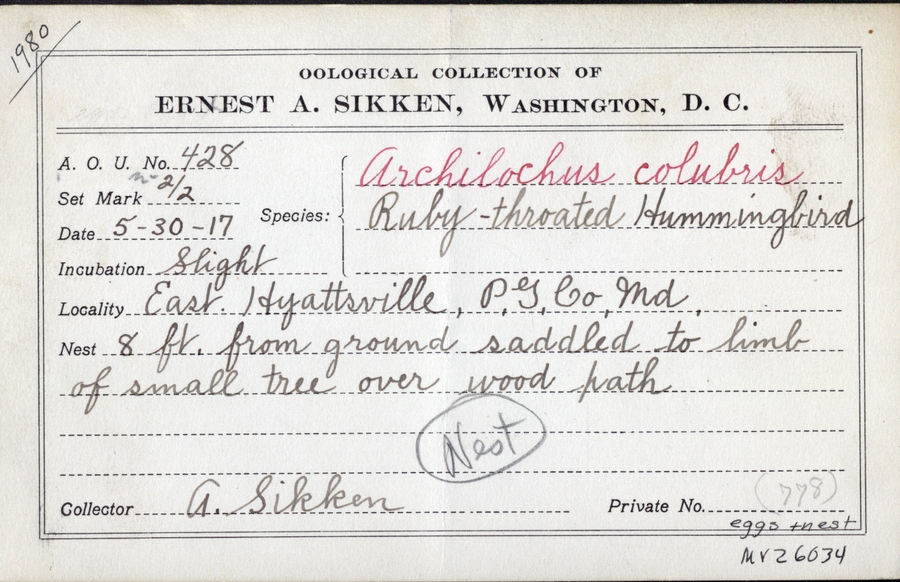 1980
OOLOGICAL COLLECTION OF
ERNEST A. SIKKEN, WASHINGTON, D. C.
A. O. U. No. 428
Set Mark 2/2
Date 5-30-17
Incubation Slight
Species: Archilochus colubris
Ruby-throated Hummingbird
Locality East. Hyattsville, P.G. Co, Md.
Nest 8 ft. from ground saddled to limb
of small tree over wood path
Nest
Collector A. Sikken
Private No. (778)
eggs + nest
MVZ6034